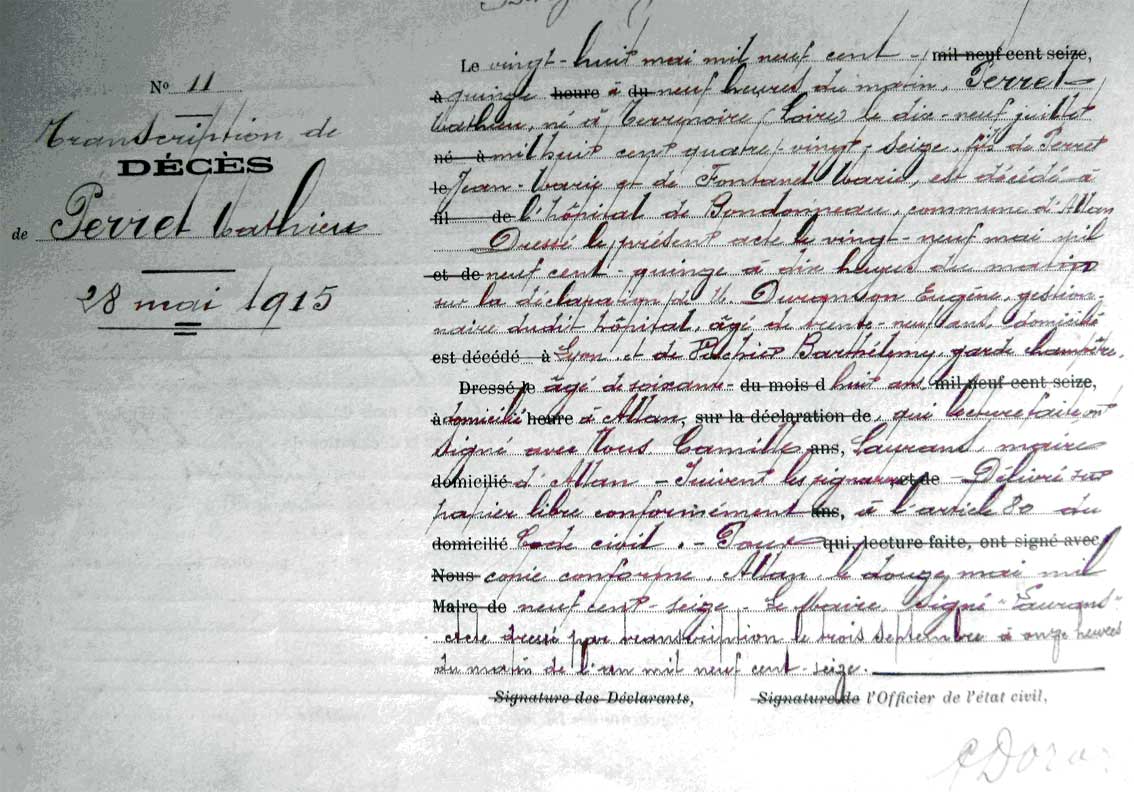 No 11
Transcription de
DÉCÈS
de Perret Mathieu
28 mai 1915
Le vingt-huit mai mil neuf cent - mil neuf cent seize,
à quinze heure à du neuf heures du matin, Perret
Mathieu, né à Terrenoire, Loire le dix-neuf juillet
né à mil huit cent quatre-vingt, seize, fils de Perret
le Jean-Marie et de Fontanel Marie, est décédé à
fil de l'hôpital de Bondonneau, commune d'Allan
Dressé le présent acte le vingt-neuf mai mil
et de neuf cent-quinze à dix heures du matin
sur la déclaration de M. Duranson Eugène, gestion-
naire dudit hôpital, âgé de trente-neuf ans, domicilié
est décédé à Lyon et de Barthélemy garde champêtre,
Dressé le âgé de soixante- du mois d huit ans mil neuf cent seize,
à domicilié heure à Allan, sur la déclaration de, qui lecture faite ont
signé avec Nous Camille ans, Laurans, maire
domicilié d'Allan - Suivent les signatures et de - Délivré sur
papier libre conformément ans, à l'article 80 du
domicilié Code civil. - Pour qui, lecture faite, ont signé avec
Nous copie conforme, Allan, le douze mai mil
Maire de neuf cent-seize - Le Maire, signé "Laurans".
Acte dressé par transcription le trois septembre à onze heures
du matin de l'an mil neuf cent-seize.
Signature des Déclarants, Signature de l'Officier de l'état civil,